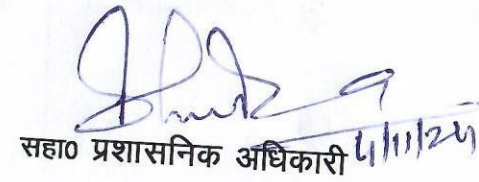 सहा० प्रशासनिक अधिकारी 4/11/24